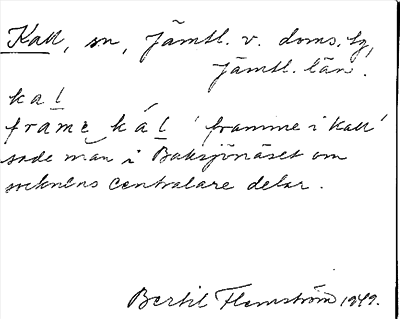 Kall, sn, Jämtl. v. doms. tg,
Jämtl. län.
kal
frame kál 'framme i Kall'
sade man i Baksjönäset om
socknens centralare delar.
Bertil Flemström 1949.